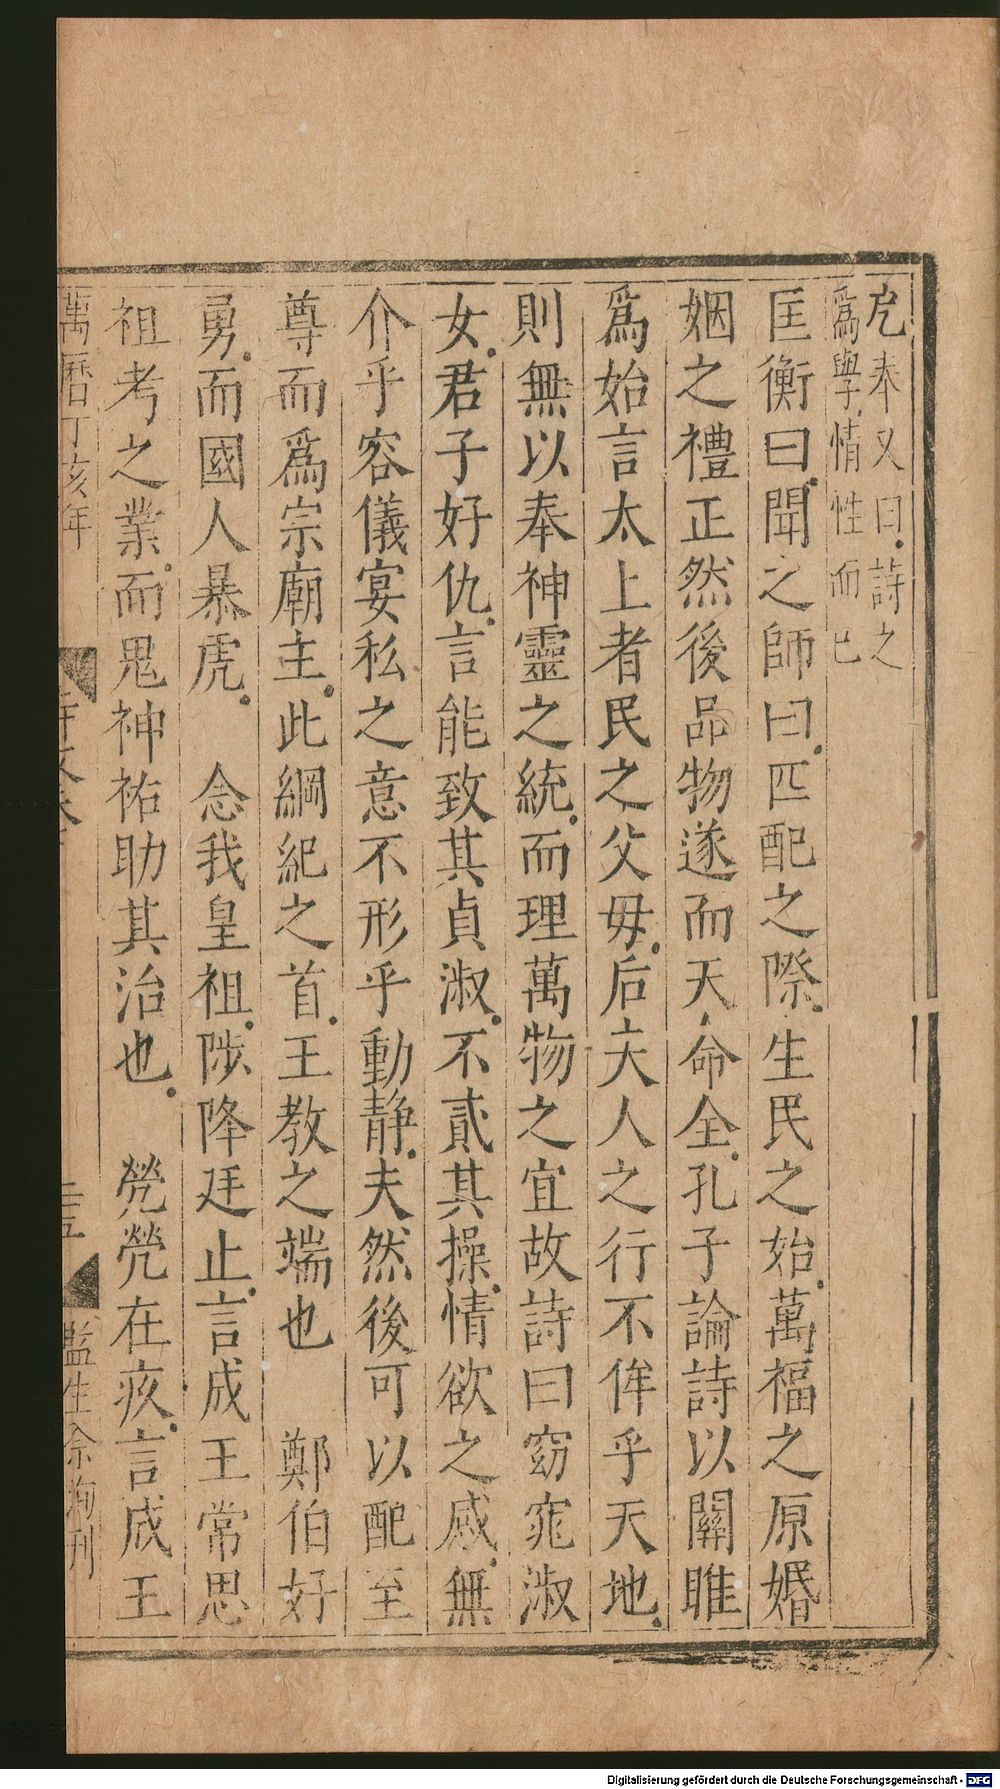 奉又曰詩之
爲學情性而已
匡衡曰聞之師曰匹配之際生民之始萬福之原婚
姻之禮正然後品物遂而天命全孔子論詩以關雎
爲始言太上者民之父母后夫人之行不侔乎天地
則無以奉神靈之統而理萬物之宜故詩曰窈窕淑
女君子好仇言能致其貞淑不貳其操情欲之感無
介乎容儀宴私之意不形乎動靜夫然後可以配至
尊而爲宗廟主此綱紀之首王教之端也 鄭伯好
勇而國人暴虎 念我皇祖陟降廷止言成王常思
祖考之業而鬼神祐助其治也 煢煢在疚言成王
萬曆丁亥年
二五
監生余 刊
Digitalisierung gefördert durch die Deutsche Forschungsgemeinschaft - DFG